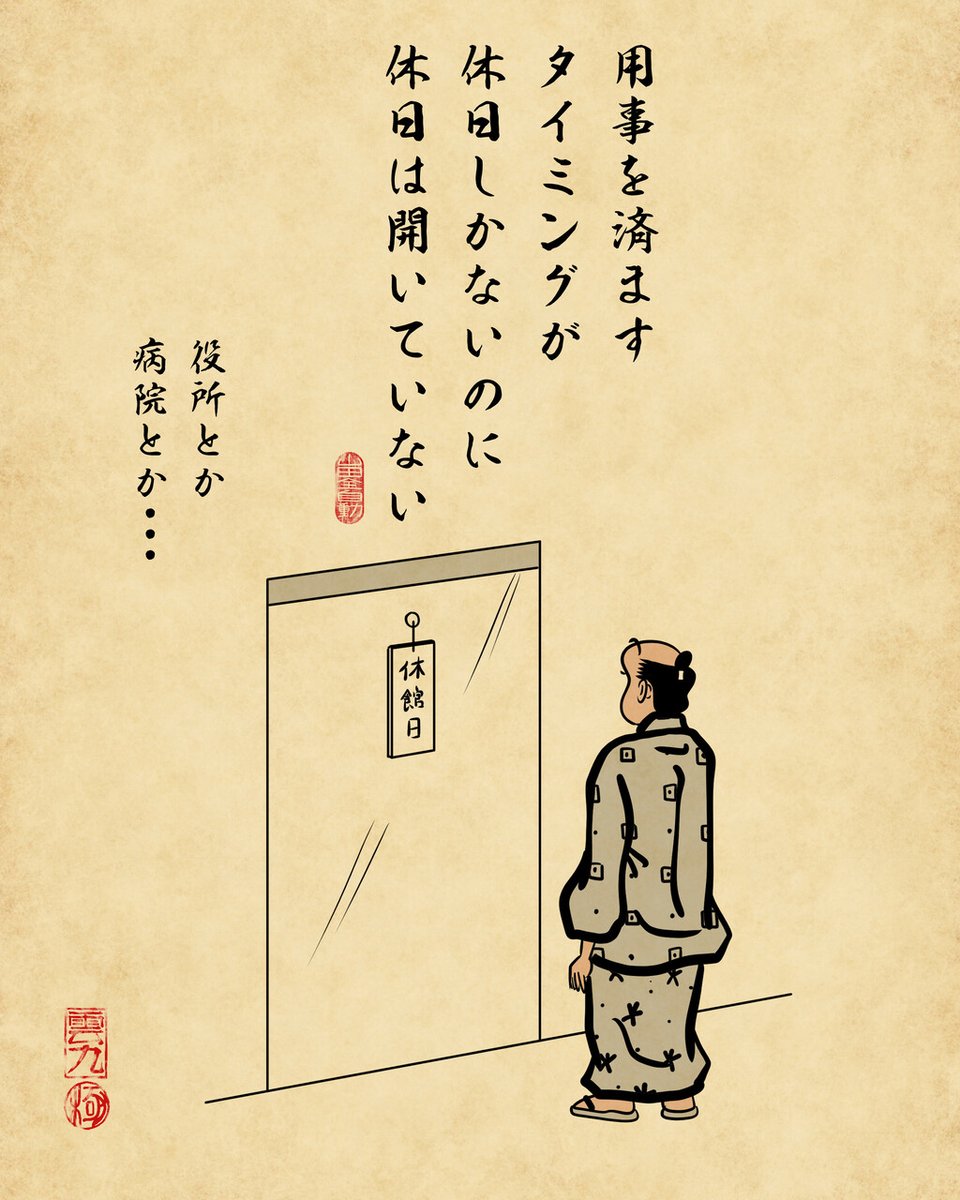 用事を済ます
タイミングが
休日しかないのに
休日は開いていない
役所とか
病院とか・・・
休館日
雲九
極